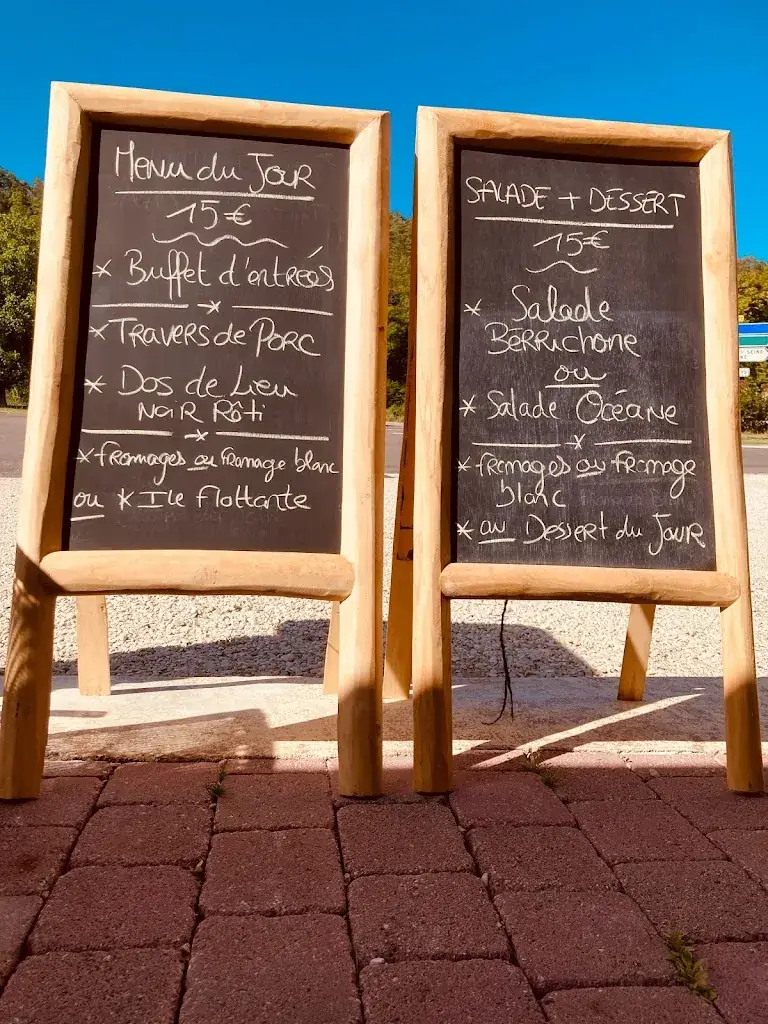 Menu du Jour
15€
* Buffet d'entrées
*
* Travers de Porc
* Dos de Lieu
Noir Rôti
*
* fromages ou fromage blanc
ou * Ile flottante
SALADE + DESSERT
15€
* Salade
Berrichone
ou
* Salade Océane
*
* fromages ou fromage
blanc
* ou Dessert du Jour